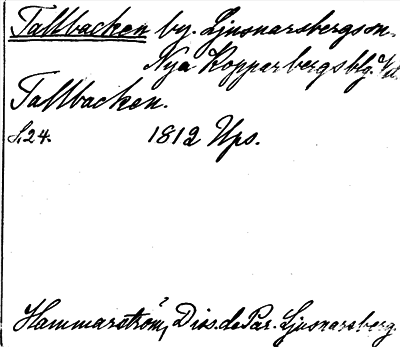 Tallbacken by. Ljusnarsbergs sn.
Nya Kopparbergs blg.
Tallbacken.
S.24. 1812 Ups.
Hammarström, Diss. de Par. Ljusnarsberg.